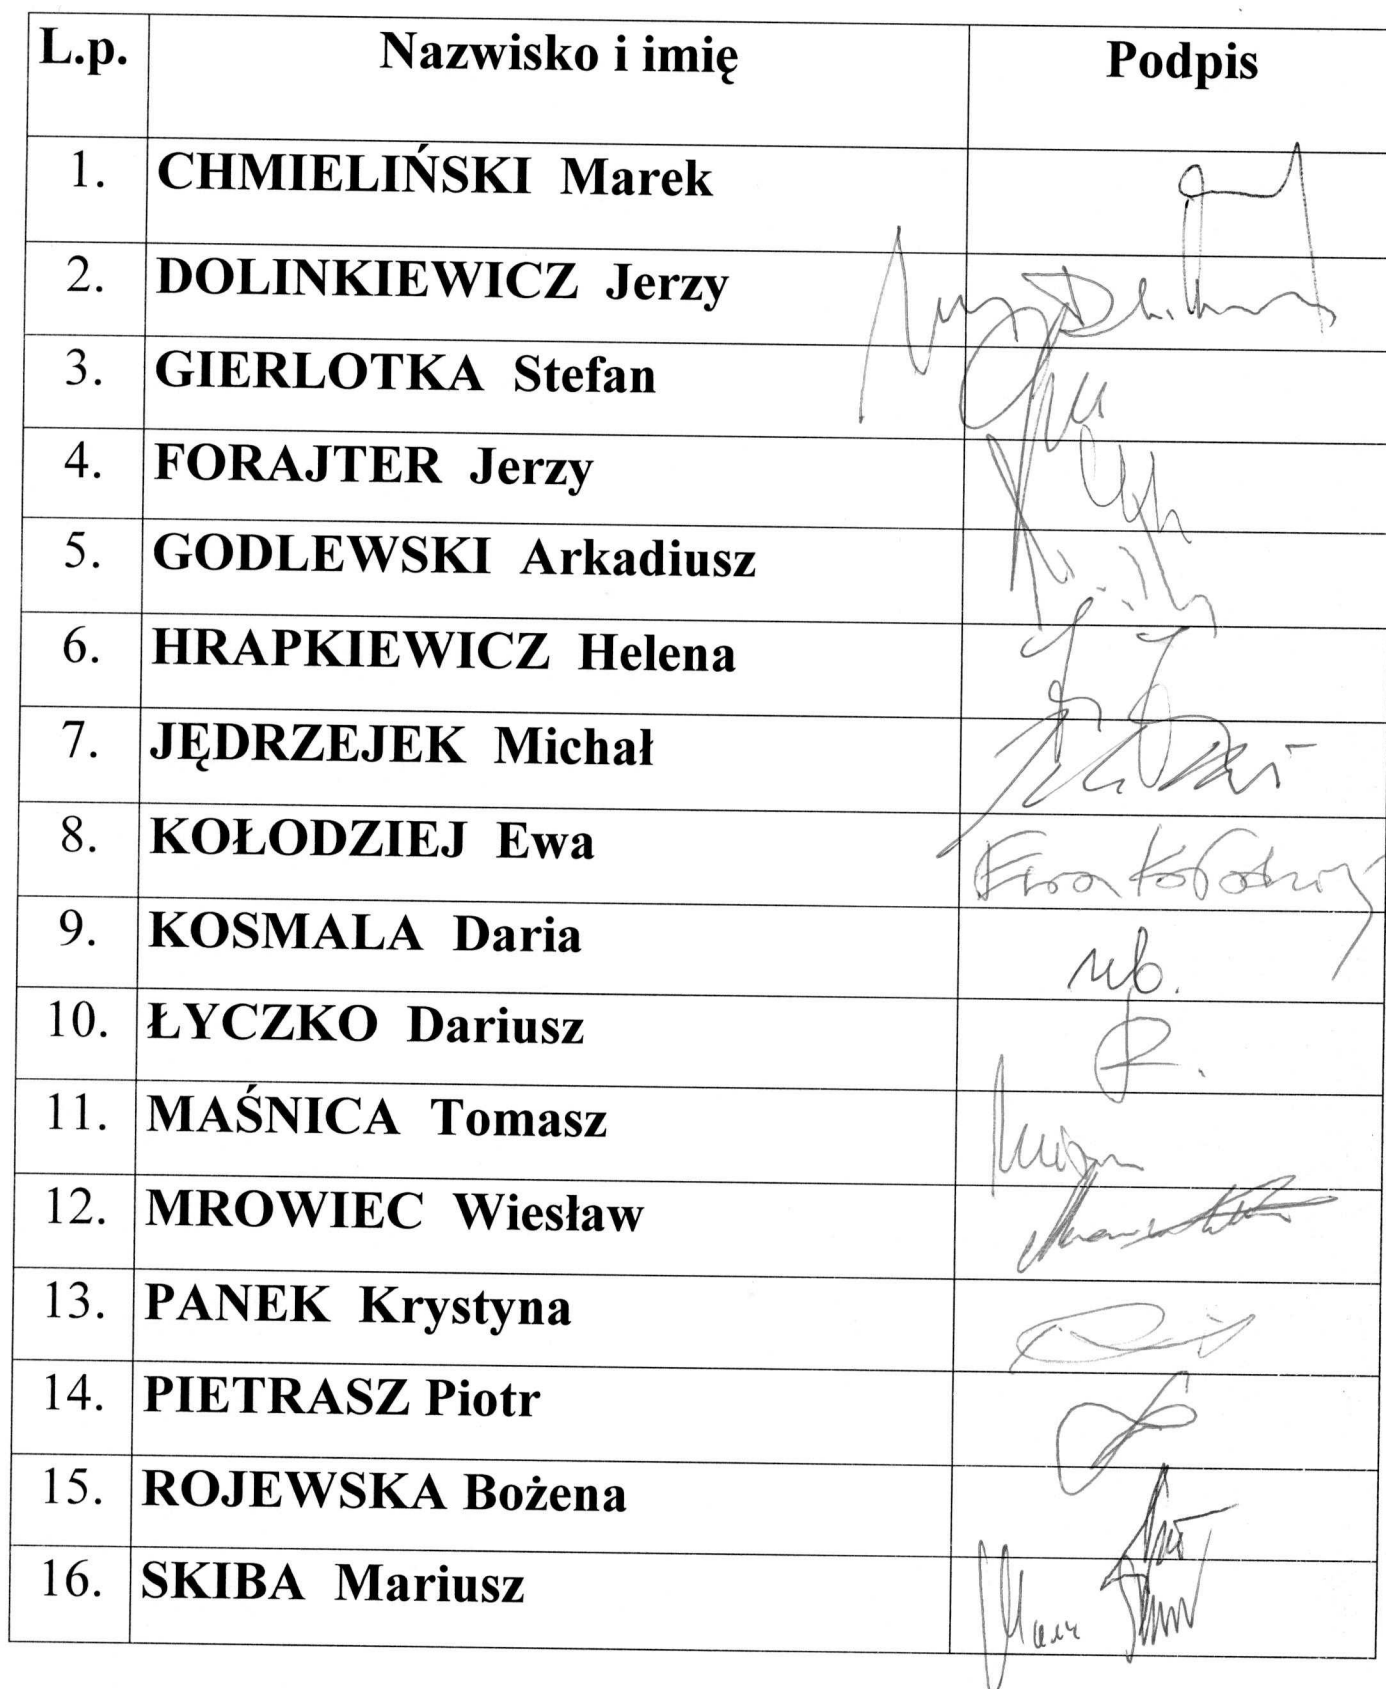 L.p. Nazwisko i imię Podpis
1. CHMIELIŃSKI Marek
2. DOLINKIEWICZ Jerzy
3. GIERLOTKA Stefan
4. FORAJTER Jerzy
5. GODLEWSKI Arkadiusz
6. HRAPKIEWICZ Helena
7. JĘDRZEJEK Michał
8. KOŁODZIEJ Ewa Ewa Kołodziej
9. KOSMALA Daria nb.
10. ŁYCZKO Dariusz
11. MAŚNICA Tomasz
12. MROWIEC Wiesław
13. PANEK Krystyna
14. PIETRASZ Piotr
15. ROJEWSKA Bożena
16. SKIBA Mariusz